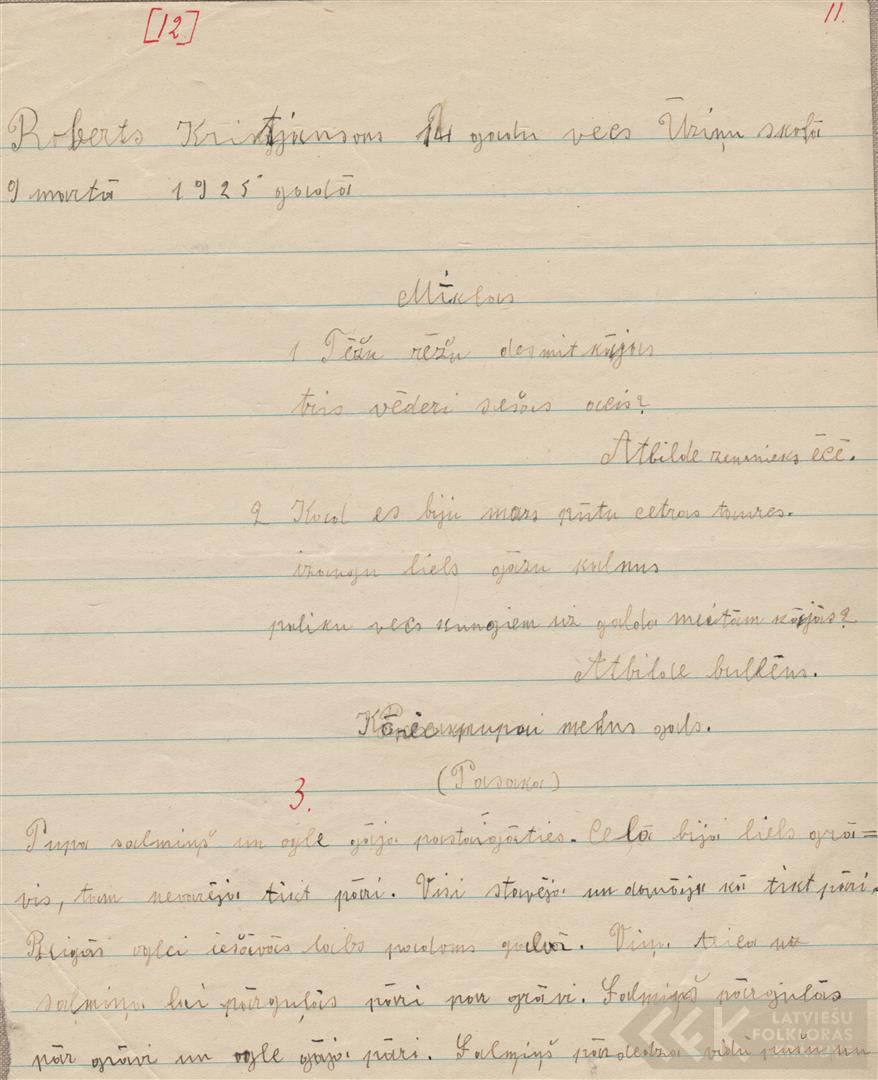 [12]
11.
Roberts Kristjansons 14 gadu vecs Ūziņu skolā
9 martā 1925 gadā
Mīklas
1 Tēžu rēžu desmit kājas
tris vēderi sešas acis?
Atbilde zemnieks ēcē.
2 Kad es biju mazs pūtu cetras taures.
izaugu liels gāzu kalnus
paliku vecs kungiem uz galda meitām kājās?
Atbilde bullēns.
pupai melns gals.
(Pasaka)
3.
Pupa salmiņš un ogle gāja pastaigāties. Ceļā bija liels grā=
vis, tam nevarēja tikt pāri. Visi stavēja un domāja kā tikt pāri.
Beigās oglei iešāvās labs padoms galvā. Viņa teica uz
salmiņa lai pārguļās pāri par grāvi. Salmiņš pārgulās
pār grāvi un ogle gāja pāri. Salmiņš pārdedza vidū pušu un
LATVIEŠU
FOLKLORAS